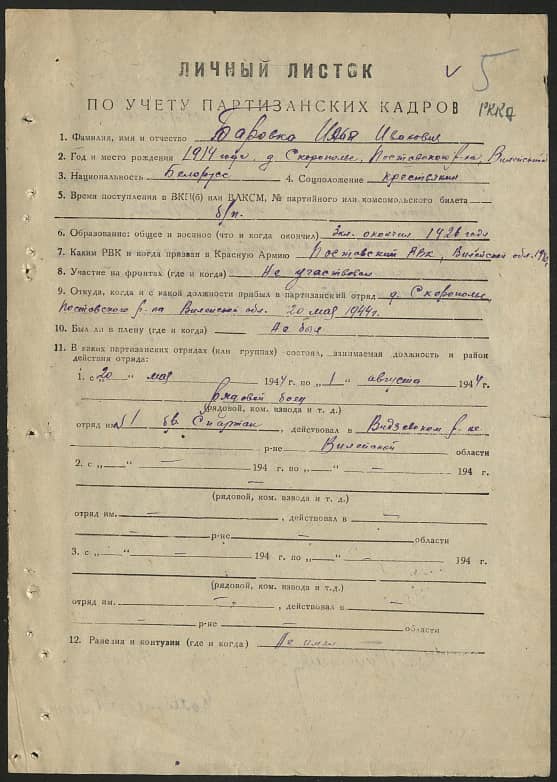 ЛИЧНЫЙ ЛИСТОК
5
ПО УЧЕТУ ПАРТИЗАНСКИХ КАДРОВ
РККА
1. Фамилия, имя и отчество Баровка Исакович
2. Год и место рождения 1914 года, д. Скорополье, Поставского р-на, Вилейской
3. Национальность Белорусс 4. Соцположение крестьянин
5. Время поступления в ВКП(б) или ВЛКСМ, № партийного или комсомольского билета
б/п.
6. Образование: общее и военное (что и когда окончил) 3кл. окончил 1926 годе
7. Каким РВК и когда призван в Красную Армию Поставский РВК, Вилейской обл.
8. Участие на фронтах (где и когда) Не участвовал
9. Откуда, когда и с какой должности прибыл в партизанский отряд д. Скорополье,
Поставского р-на Вилейской обл. 20 мая 1944г.
10. Был ли в плену (где и когда) Не был
11. В каких партизанских отрядах (или группах) состоял, занимаемая должность и район
действия отряда:
1. с „20 “ мая 1944 г. по „1 “ августа 194 4 г.
рядовой боец
(рядовой, ком. взвода и т. д.)
отряд им. №1 бр. Спартак, действовал в Видзевском р-не
р-не Вилейской области
2. с „—“ — 194 г. по „—“ — 194 г.
—
(рядовой, ком. взвода и т. д.)
отряд им. — , действовал в —
— р-не — области
3. с „—“ — 194 г. по „—“ — 194 г.
—
(рядовой, ком. взвода и т.д.)
отряд им. — , действовал в —
— р-не — области
12. Ранения и контузии (где и когда) Не имел